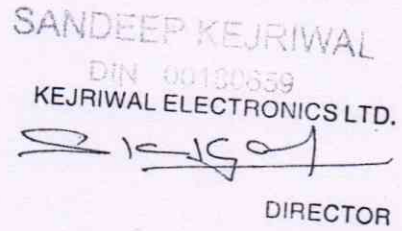 SANDEEP KEJRIWAL
DIN 00130659
KEJRIWAL ELECTRONICS LTD.
DIRECTOR